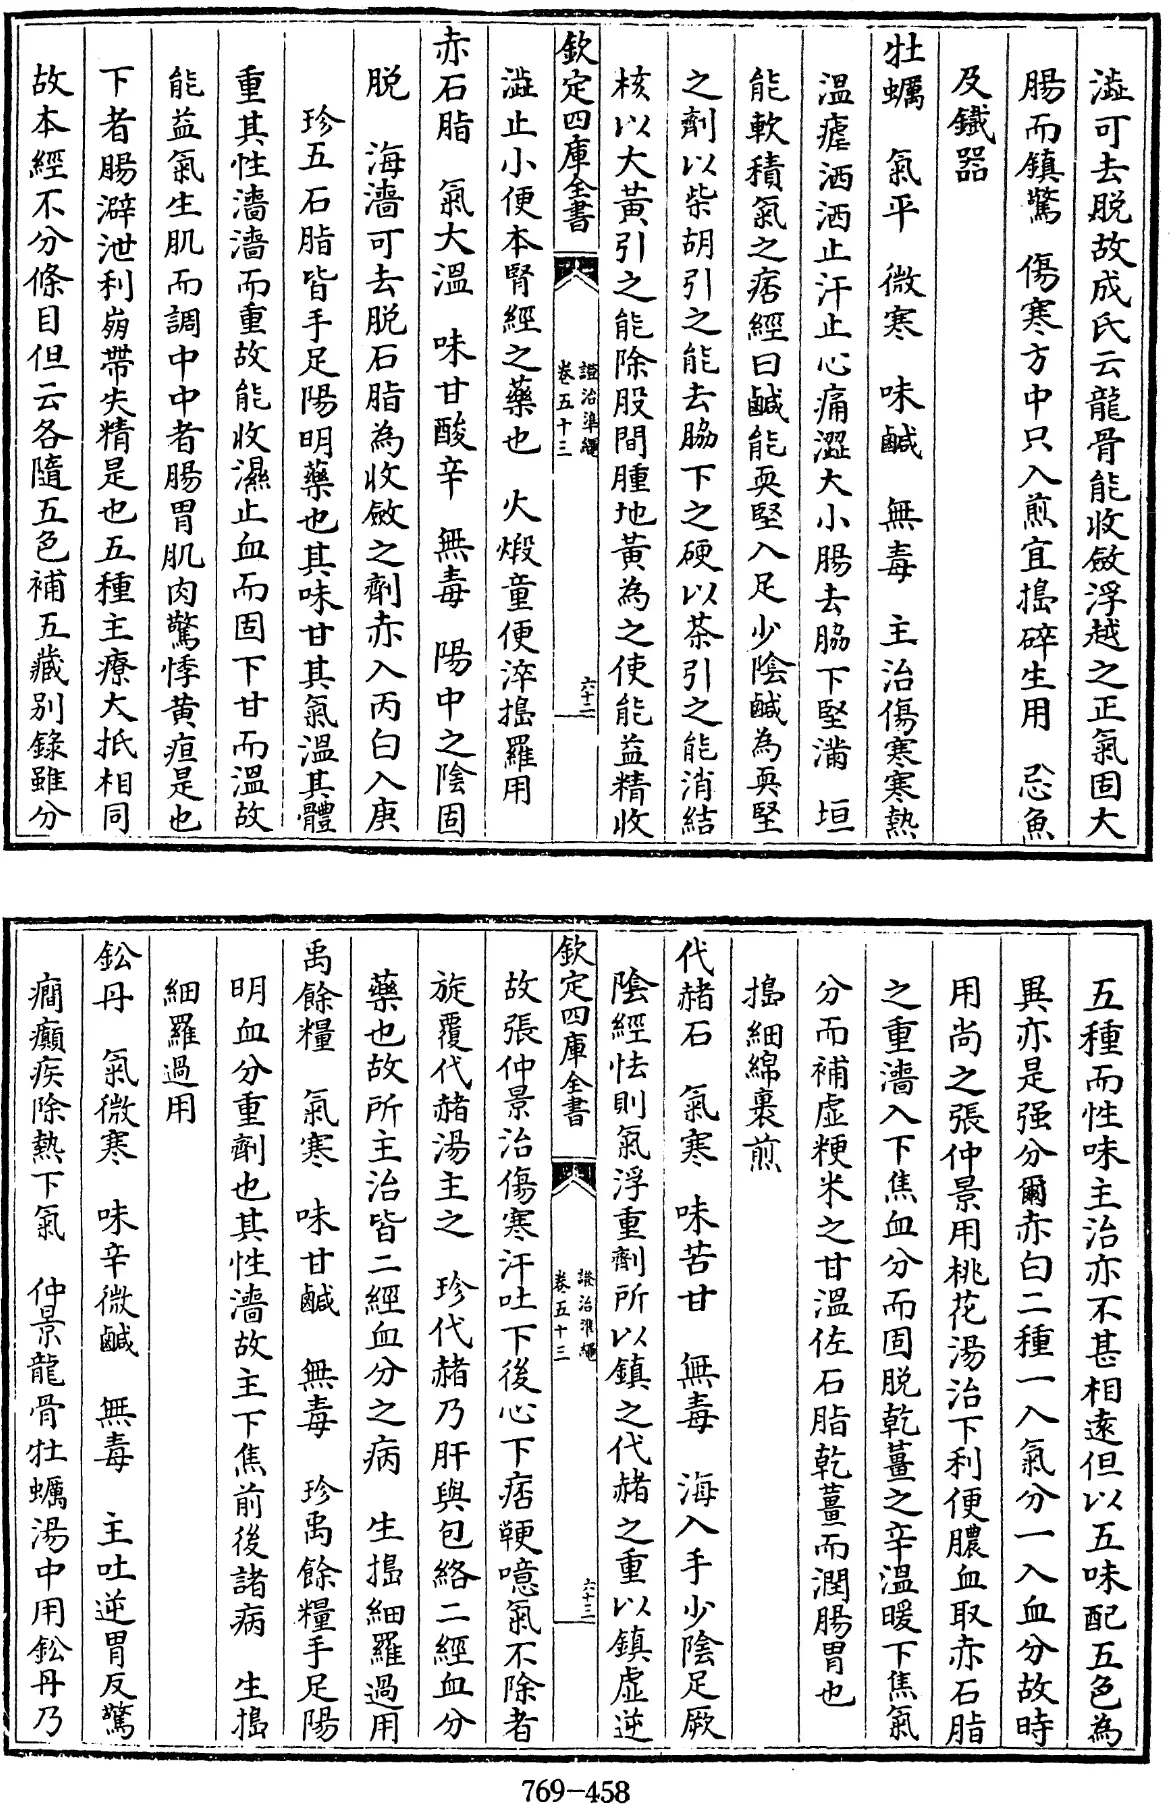 澁可去脱故成氏云龍骨能收斂浮越之正氣固大
腸而鎮驚　傷寒方中只入煎宜搗碎生用　忌魚
及鐵器
牡蠣　氣平　微寒　味鹹　無毒　主治傷寒寒熱
溫瘧洒洒止汗止心痛澀大小腸去脇下堅滿　垣
能軟積氣之痞經曰鹹能耎堅入足少陰鹹為耎堅
之劑以柴胡引之能去脇下之硬以茶引之能消結
核以大黃引之能除股間腫地黃為之使能益精收
欽定四庫全書　證治準繩卷五十三　六十二
澁止小便本腎經之藥也　火煅童便淬搗羅用
赤石脂　氣大溫　味甘酸辛　無毒　陽中之陰固
脱　海濇可去脱石脂為收斂之劑赤入丙白入庚
珍五石脂皆手足陽明藥也其味甘其氣溫其體
重其性濇濇而重故能收濕止血而固下甘而溫故
能益氣生肌而調中中者腸胃肌肉驚悸黃疸是也
下者腸澼泄利崩帶失精是也五種主療大抵相同
故本經不分條目但云各隨五色補五藏别錄雖分
五種而性味主治亦不甚相遠但以五味配五色為
異亦是强分爾赤白二種一入氣分一入血分故時
用尚之張仲景用桃花湯治下利便膿血取赤石脂
之重濇入下焦血分而固脱乾薑之辛溫暖下焦氣
分而補虛粳米之甘溫佐石脂乾薑而潤腸胃也
搗細綿裹煎
代赭石　氣寒　味苦甘　無毒　海入手少陰足厥
陰經怯則氣浮重劑所以鎮之代赭之重以鎮虛逆
欽定四庫全書　證治準繩卷五十三　六十三
故張仲景治傷寒汗吐下後心下痞鞕噫氣不除者
旋覆代赭湯主之　珍代赭乃肝與包絡二經血分
藥也故所主治皆二經血分之病　生搗細羅過用
禹餘糧　氣寒　味甘鹹　無毒　珍禹餘糧手足陽
明血分重劑也其性濇故主下焦前後諸病　生搗
細羅過用
鉛丹　氣微寒　味辛微鹹　無毒　主吐逆胃反驚
癎癲疾除熱下氣　仲景龍骨牡蠣湯中用鉛丹乃
769-458